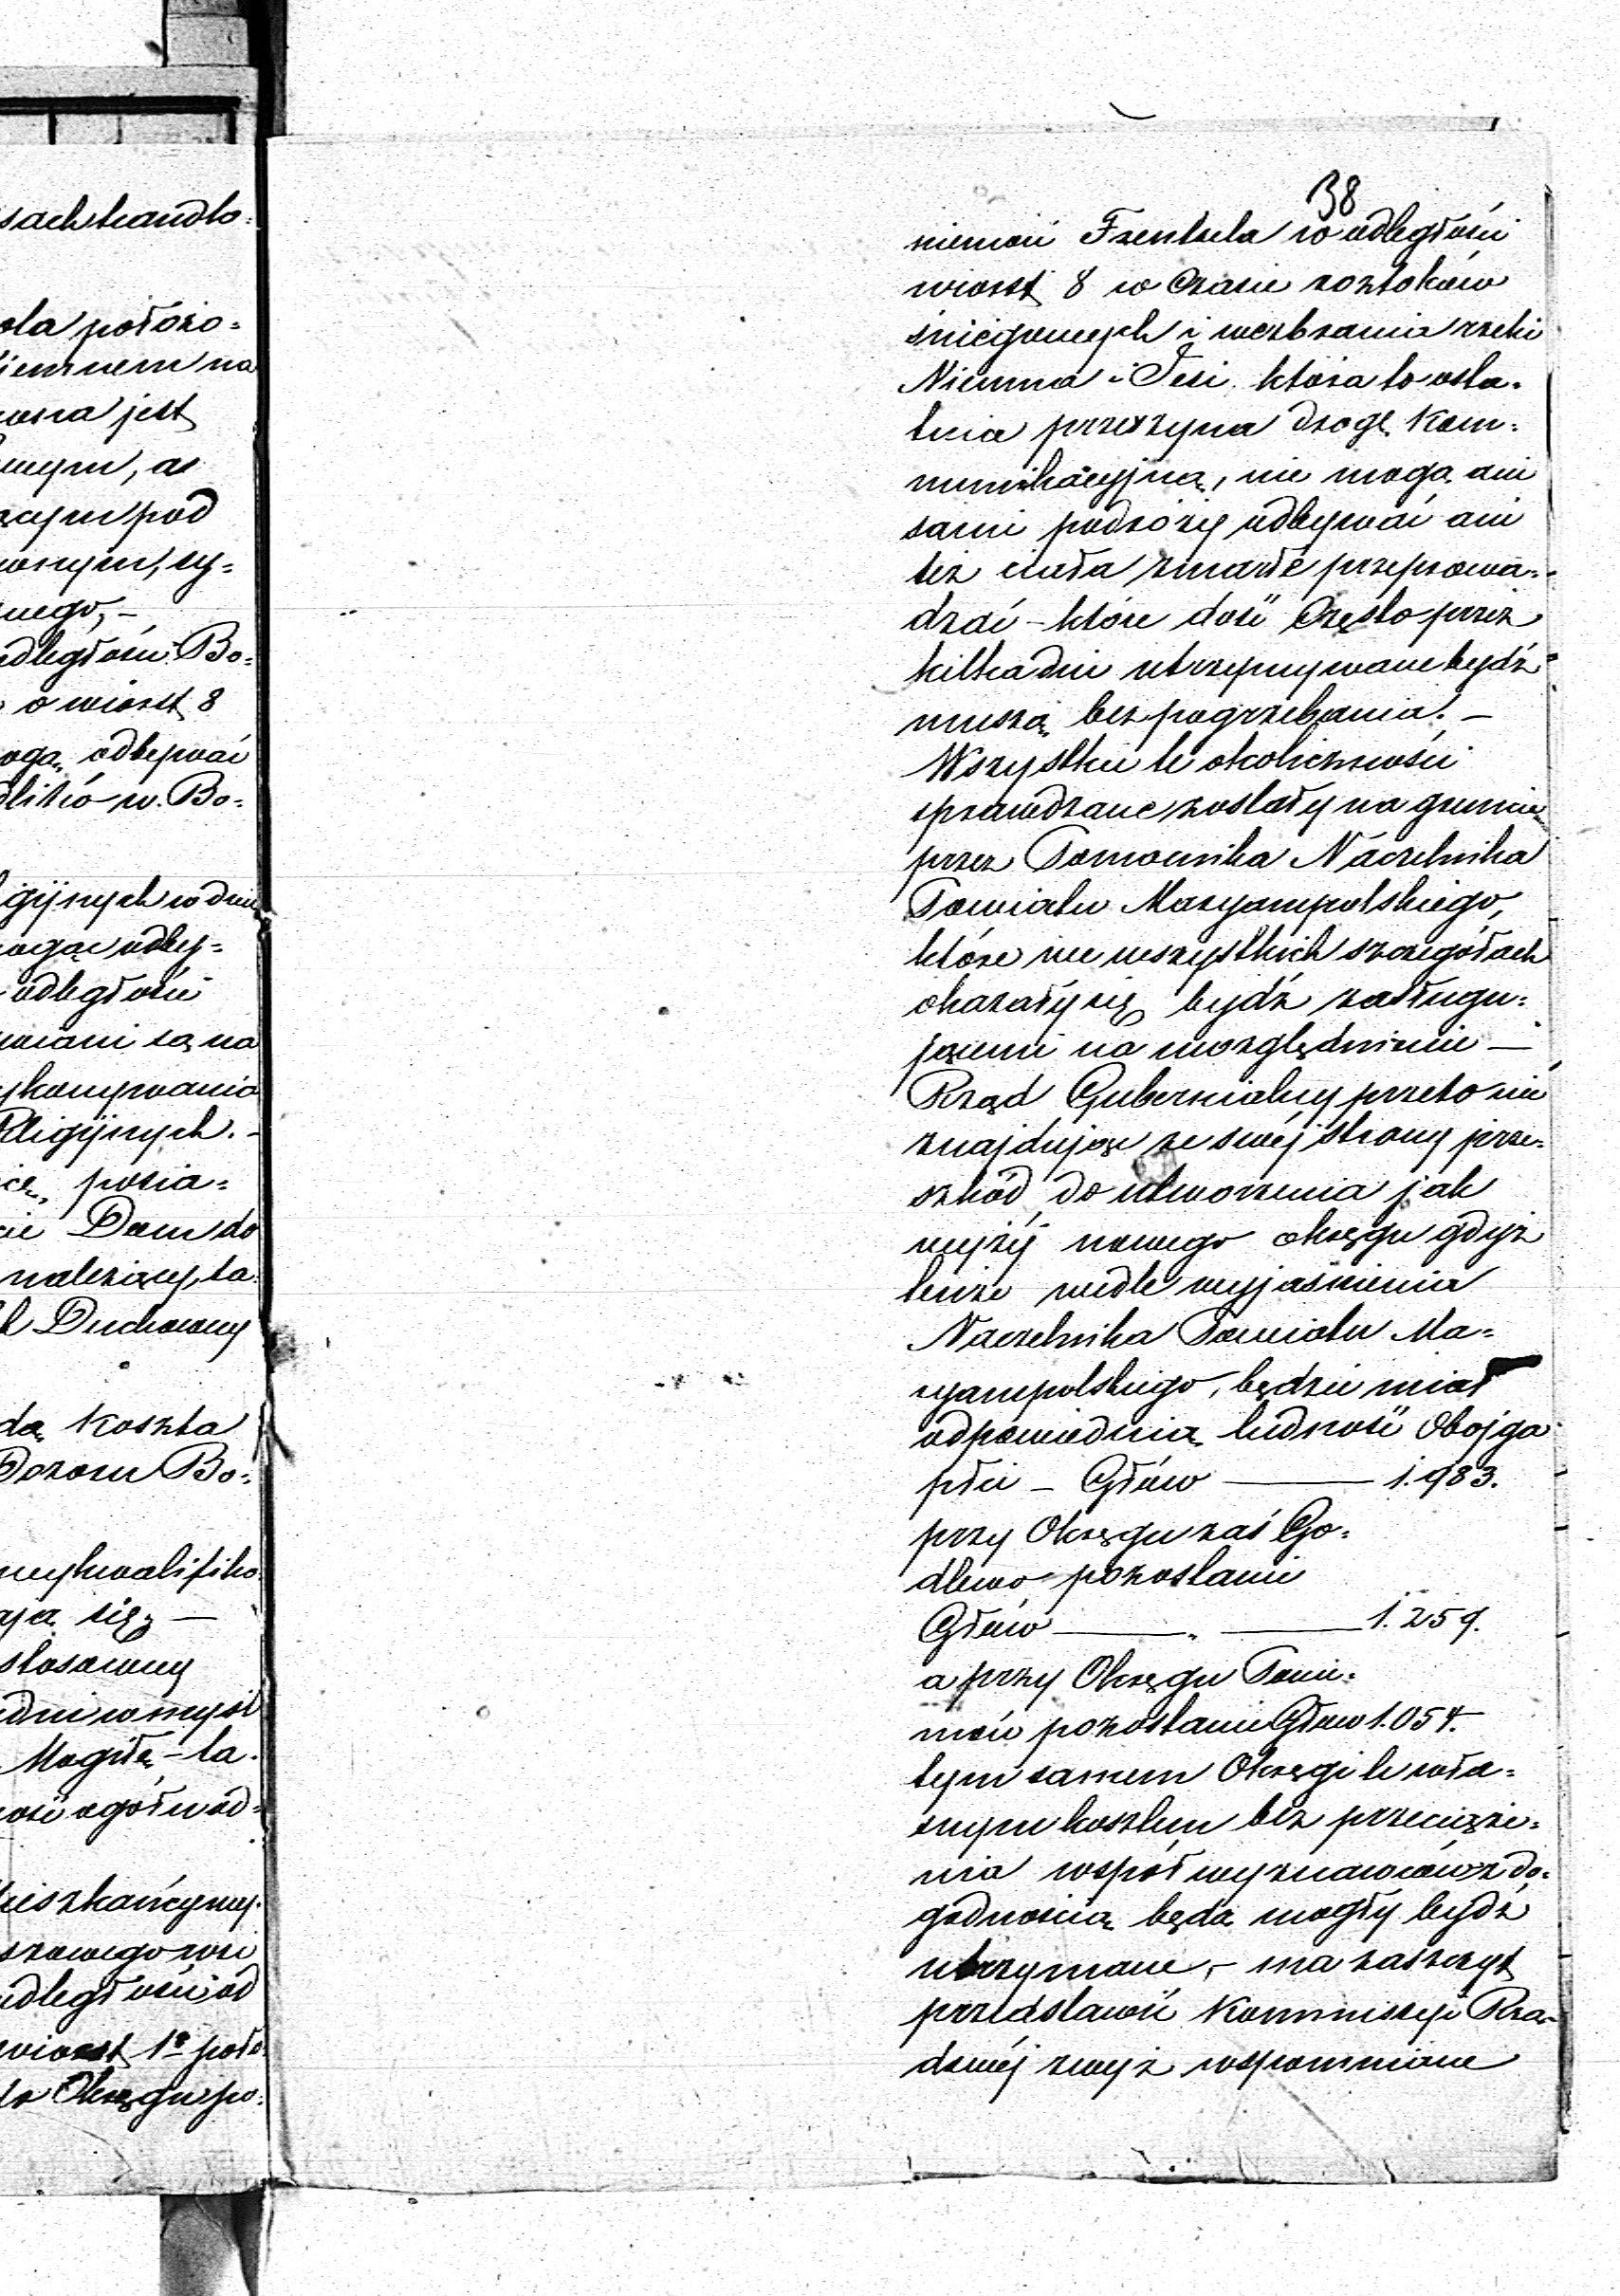 sach handlo=
ola położo=
iemnem na
wona jest
wnym, a
ącym pod
wonym, sy=
nego, –
odległości Bo=
o wiorst 8
ogą odbywać
dlitw w Bo=
igijnych w dni
ogąc odby=
odległości
wiani są na
ykonywania
Religijnych. –
posia=
cie Dom do
należący, ta
k Duchowny
dą koszta
Dozoru Bo=
wykwalifiko
ają się –
stosowny
dni w myśl
Mogiłę – ta.
ość ogółu od=
Mieszkańcy wy.
szowego wsi
odległości od
wiorst 1½ poło
do Okręgu po=
38
niemoń Frentzela w odległości
wiorst 8 w czasie roztoków
śniegowych i wezbrania rzeki
Niemna i Jesi która to osta=
tnia przerzyna drogę kom=
munikacyjną, nie mogą ani
sami podróży odbywać ani
też ciała zmarłe przeprowa=
dzać – które dość często przez
kilka dni utrzymywane bydź
muszą bez pogrzebania. –
Wszystkie te okoliczności
sprawdzane zostały na gruncie
przez Pomocnika Naczelnika
Powiatu Maryampolskiego,
które we wszystkich szczegółach
okazały się bydź zasługu=
jącemi na uwzględnienie –
Rząd Gubernialny przeto nie
znajdując ze swéj strony prze=
szkód do utworzenia jak
wyżéj nowego okręgu gdyż
tenże wedle wyjaśnienia
Naczelnika Powiatu Ma=
ryampolskiego, będzie miał
odpowiednią ludność obojga
płci – Głów ——— 1.983.
przy Okręgu zaś Go=
dlewo pozostanie
Głów ——— „ ——— 1.259.
a przy Okręgu Ponie=
moń pozostanie Głów 1.054.
tym samem Okręgi te wła=
snym kosztem bez przeciąże=
nia współwyznawców z do=
godnością będą mogły bydź
utrzymane, – ma zaszczyt
przedstawić Kommissyi Rzą=
dowéj zwyż wspomniane